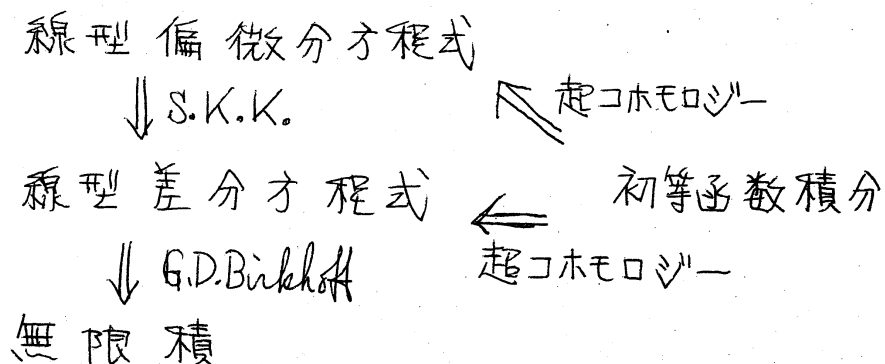 線型偏微分方程式
S.K.K.
超コホモロジー
線型差分方程式
初等函数積分
G.D.Birkhoff
超コホモロジー
無限積